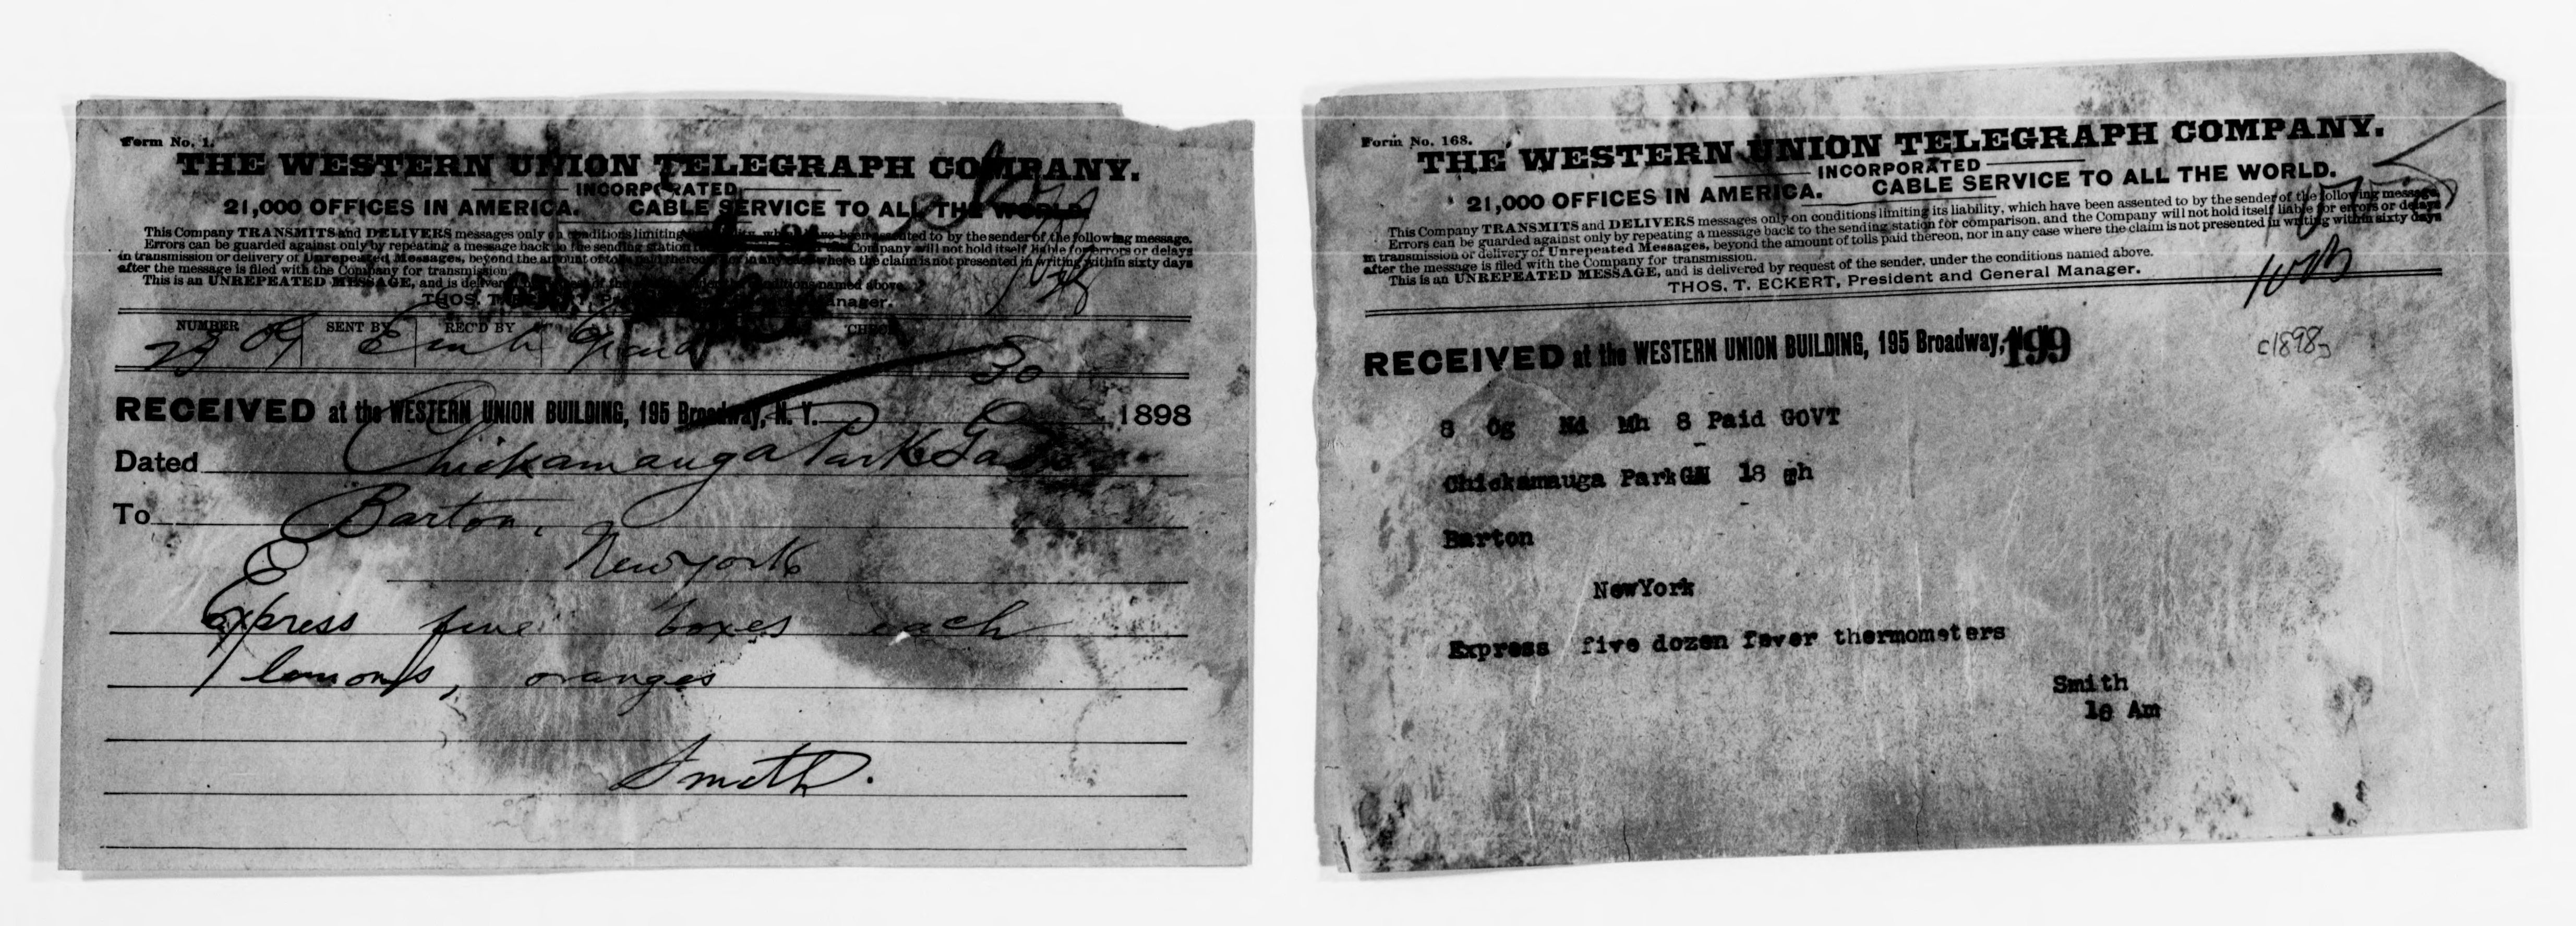 Form No. 1.
THE WESTERN UNION TELEGRAPH COMPANY.
INCORPORATED
21,000 OFFICES IN AMERICA. CABLE SERVICE TO ALL THE WORLD.
This Company TRANSMITS and DELIVERS messages only on conditions limiting which have been assented to by the sender of the following message.
Errors can be guarded against only by repeating a message back to the sending station Company will not hold itself liable for errors or delays
in transmission or delivery of Unrepeated Messages, beyond the amount of tolls paid thereon, nor in any case where the claim is not presented in writing within sixty days
after the message is filed with the Company for transmission.
This is an UNREPEATED MESSAGE, and is delivered conditions named above.
THOS. T. Manager.
NUMBER SENT BY REC'D BY CHECK
23 30
RECEIVED at the WESTERN UNION BUILDING, 195 Broadway, N. Y. 1898
Dated Chickamauga Park Ga
To Barton,
New york
Express five boxes each
lemons, oranges
Smith.
Form No. 168.
THE WESTERN UNION TELEGRAPH COMPANY.
INCORPORATED
21,000 OFFICES IN AMERICA. CABLE SERVICE TO ALL THE WORLD.
This Company TRANSMITS and DELIVERS messages only on conditions limiting its liability, which have been assented to by the sender of the following message.
Errors can be guarded against only by repeating a message back to the sending station for comparison, and the Company will not hold itself liable for errors or delays
in transmission or delivery of Unrepeated Messages, beyond the amount of tolls paid thereon, nor in any case where the claim is not presented in writing within sixty days
after the message is filed with the Company for transmission.
This is an UNREPEATED MESSAGE, and is delivered by request of the sender, under the conditions named above.
THOS. T. ECKERT, President and General Manager.
RECEIVED at the WESTERN UNION BUILDING, 195 Broadway, 199
c1898
8 Og Nd Mh 8 Paid GOVT
Chickamauga Park GA 18
Barton
NewYork
Express five dozen fever thermometers
Smith
10 Am